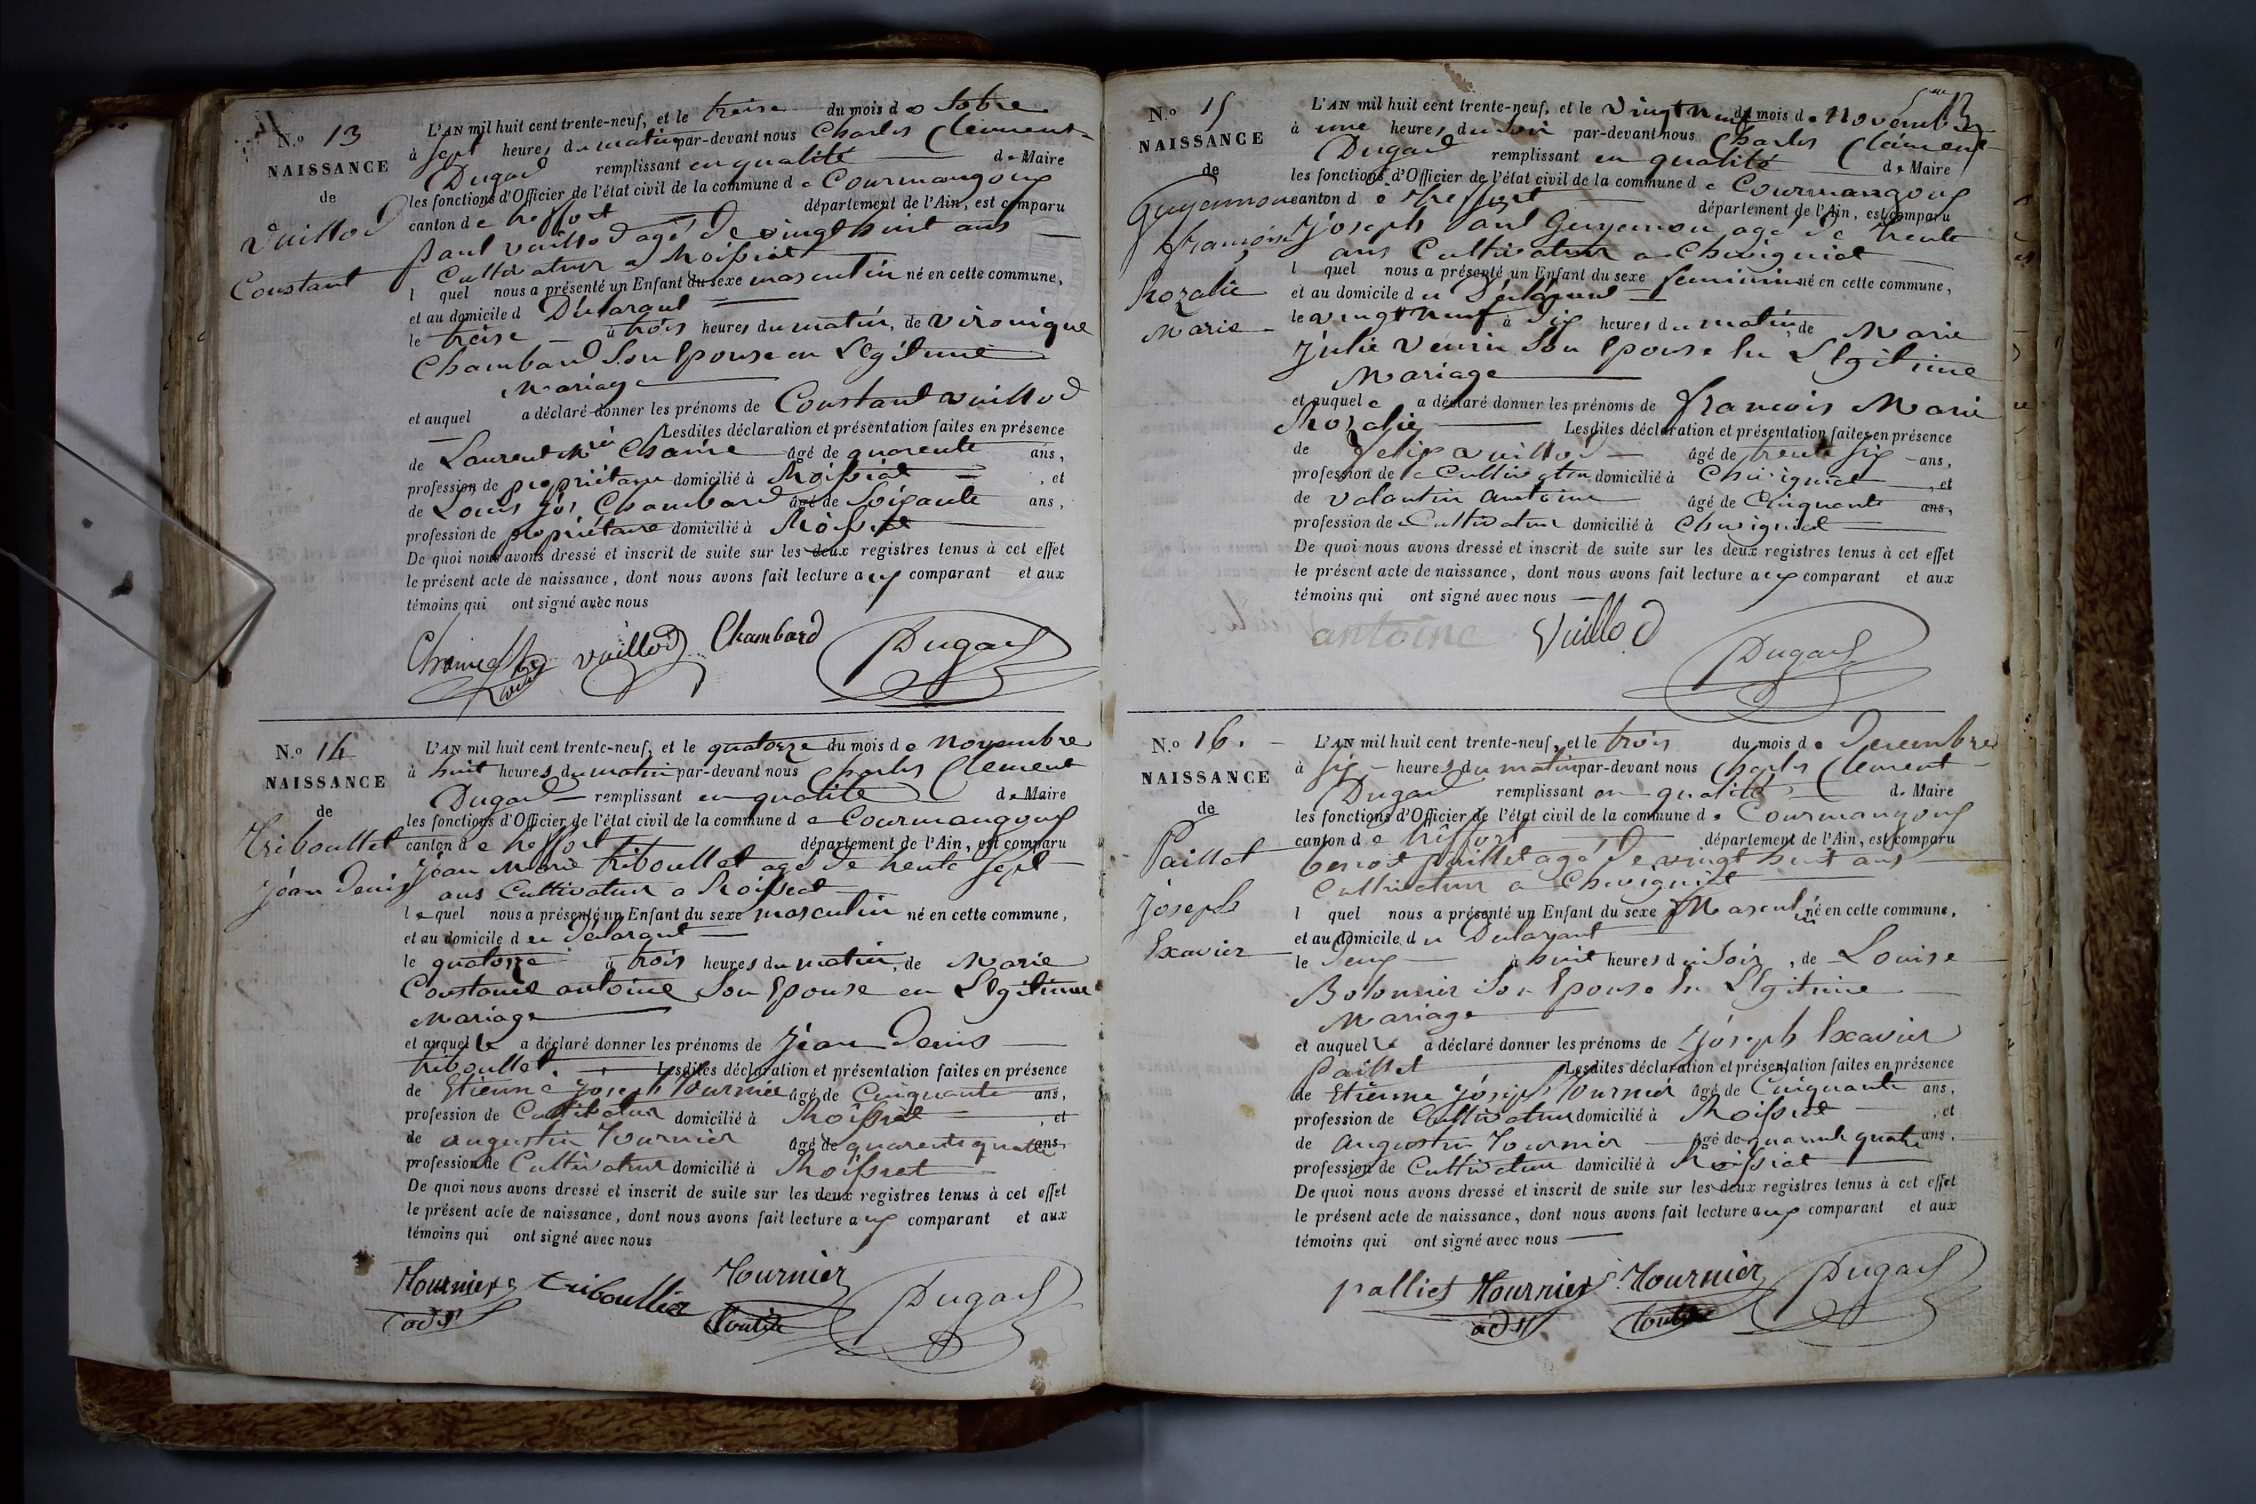 N.º 13
NAISSANCE
de
Vuillod
Constant
L'AN mil huit cent trente-neuf, et le treise du mois d octobre
à sept heures du matin par-devant nous Charles Clement
Dugad remplissant en qualité de Maire
les fonctions d'Officier de l'état civil de la commune de Courmangoux
canton de treffort département de l'Ain, est comparu
paul vuillod agé de vingt huit ans
Cultivateur a Roissiat
l quel nous a présenté un Enfant du sexe masculin né en cette commune,
et au domicile d Déclarant
le treise à trois heures du matin, de véronique
Chambard Son Epouse en Légitime
Mariage
et auquel a déclaré donner les prénoms de Constant vuillod
Lesdites déclaration et présentation faites en présence
de Laurent Chaine âgé de quarente ans,
profession de propriétaire domicilié à Roissiat, et
de Louis Jos Chambard âgé de Soixante ans,
profession de propriétaire domicilié à Roissiat
De quoi nous avons dressé et inscrit de suite sur les deux registres tenus à cet effet
le présent acte de naissance, dont nous avons fait lecture aux comparant et aux
témoins qui ont signé avec nous
Chaine vuillod Chambard Dugad
N.º 14
NAISSANCE
de
Triboullet
Jéan Denis
L'AN mil huit cent trente-neuf, et le quatorze du mois de novembre
à huit heures du matin par-devant nous Charles Clement
Dugad remplissant en qualité de Maire
les fonctions d'Officier de l'état civil de la commune de Courmangoux
canton de treffort département de l'Ain, est comparu
Jéan Marie triboullet agé de trente sept
ans Cultivateur a Roissiat
le quel nous a présenté un Enfant du sexe masculin né en cette commune,
et au domicile du Déclarant
le quatorze à trois heures du matin, de Marie
Constance antoine Son Epouse en Légitime
Mariage
et auquel a déclaré donner les prénoms de Jéan Denis
triboullet. Lesdites déclaration et présentation faites en présence
de Etienne Joseph Tournier âgé de Cinquante ans,
profession de Cultivateur domicilié à Roissiat, et
de augustin Tournier âgé de quarente quatre ans
profession de Cultivateur domicilié à Roissiat
De quoi nous avons dressé et inscrit de suite sur les deux registres tenus à cet effet
le présent acte de naissance, dont nous avons fait lecture aux comparant et aux
témoins qui ont signé avec nous
Tournier triboullier Tournier Dugad
adjt
N.º 15
NAISSANCE
de
Guyennon
françoise
Rozalie
Marie
L'AN mil huit cent trente-neuf, et le vingt neuf du mois de novembre
à une heures du Soir par-devant nous Charles Clement
Dugad remplissant en qualité de Maire
les fonctions d'Officier de l'état civil de la commune de Courmangoux
canton de Treffort département de l'Ain, est comparu
Joseph paul Guyennon agé de trente
ans Cultivateur a Chevignat
l quel nous a présenté un Enfant du sexe feminin né en cette commune,
et au domicile du Déclarant
le vingt neuf à dix heures du matin de Marie
Julie Son Epouse En Légitime
Mariage
et auquele a déclaré donner les prénoms de françois Marie
Rozalie Lesdites déclaration et présentation faites en présence
de felix vuillod âgé de trente six ans,
profession de Cultivateur domicilié à Chevignat, et
de valantin antoine âgé de Cinquante ans,
profession de Cultivateur domicilié à Chevignat
De quoi nous avons dressé et inscrit de suite sur les deux registres tenus à cet effet
le présent acte de naissance, dont nous avons fait lecture aux comparant et aux
témoins qui ont signé avec nous
antoine Vuillod Dugad
N.º 16.
NAISSANCE
de
Paillet
Joseph
Exavier
L'AN mil huit cent trente-neuf, et le trois du mois de Decembre
à six heures du matin par-devant nous Charles Clement
Dugad remplissant en qualité de Maire
les fonctions d'Officier de l'état civil de la commune de Courmangoux
canton de treffort département de l'Ain, est comparu
benoit paillet agé de vingt huit ans
Cultivateur a Chevignat
l quel nous a présenté un Enfant du sexe Masculin né en cette commune,
et au domicile du Declarant
le Deux à huit heures du Soir, de Louise
Bolomier Son Epouse En Légitime
Mariage
et auquel a déclaré donner les prénoms de Joseph Exavier
Paillet Lesdites déclaration et présentation faites en présence
de Etienne Joseph Tournier âgé de Cinquante ans,
profession de Cultivateur domicilié à Roissiat, et
de augustin Tournier âgé de quarente quatre ans.
profession de Cultivateur domicilié à Roissiat
De quoi nous avons dressé et inscrit de suite sur les deux registres tenus à cet effet
le présent acte de naissance, dont nous avons fait lecture aux comparant et aux
témoins qui ont signé avec nous
palliet Tournier Tournier Dugad
adjt